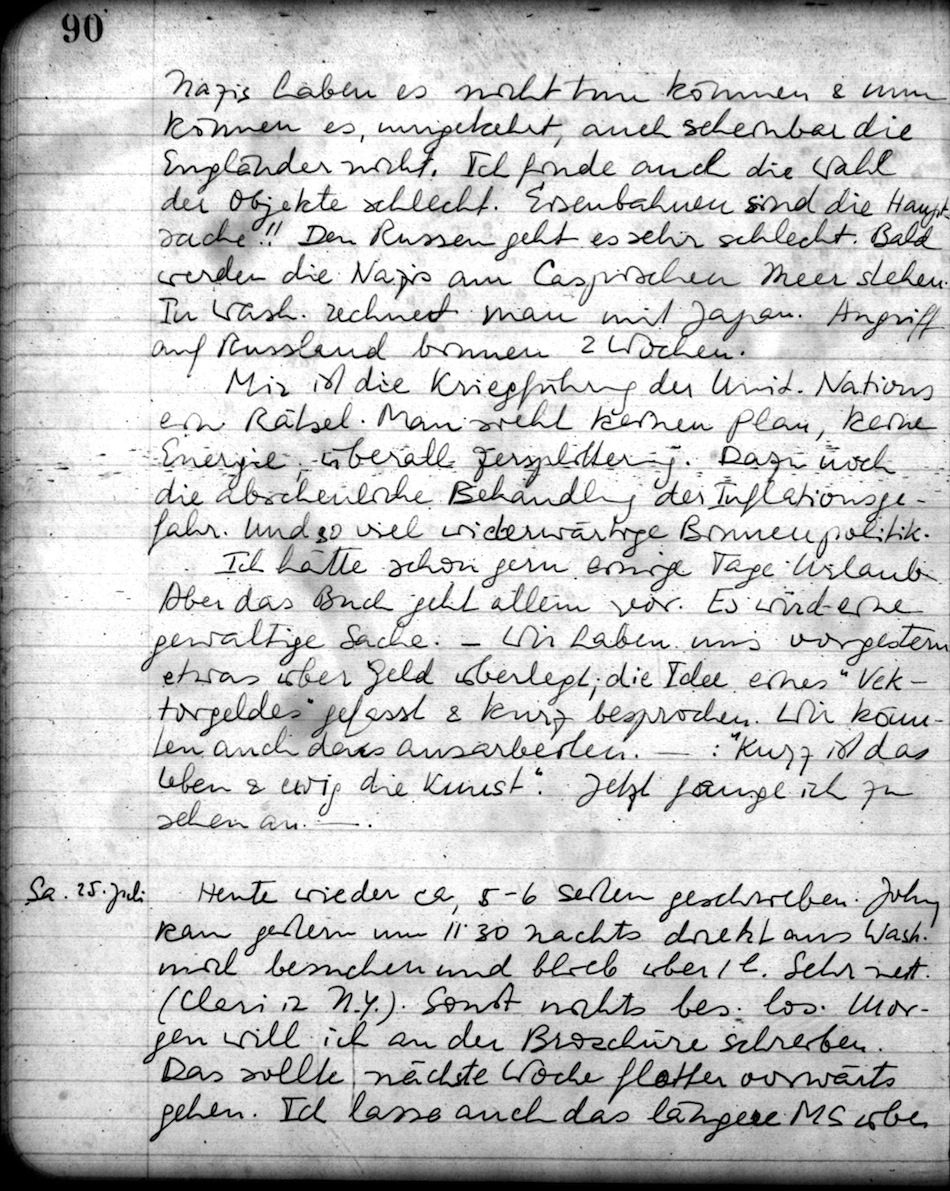 90
Nazis haben es nicht tun können & nun
können es, umgekehrt, auch scheinbar die
Engländer nicht. Ich finde auch die Wahl
der Objekte schlecht. Eisenbahnen sind die Haupt-
sache!! Den Russen geht es sehr schlecht. Bald
werden die Nazis am Caspischen Meer stehen.
In Wash. rechnet man mit Japan. Angriff
auf Russland binnen 2 Wochen.
Mir ist die Kriegführung der Unit. Nations
ein Rätsel. Man sieht keinen Plan, keine
Energie, überall Zersplitterung. Dazu noch
die abscheuliche Behandlung der Inflationsge-
fahr. Und so viel widerwärtige Binnenpolitik.
Ich hätte schon gern einige Tage Urlaub.
Aber das Buch geht allem vor. Es wird eine
gewaltige Sache. – Wir haben uns vorgestern
etwas über Geld überlegt; die Idee eines "Vek-
torgeldes" gefasst & kurz besprochen. Wir könn-
ten auch das ausarbeiten. — : "Kurz ist das
Leben & ewig die Kunst". Jetzt fange ich zu
sehen an. —.
Sa. 25. Juli Heute wieder ca, 5-6 Seiten geschrieben. Johny
kam gestern um 11 30 nachts direkt aus Wash.
mich besuchen und blieb über 1 h. Sehr nett.
(Clari iz N.Y.). Sonst nichts bes. los. Mor-
gen will ich an der Broschüre schreiben.
Das sollte nächste Woche flotter vorwärts
gehen. Ich lasse auch das längere MS über